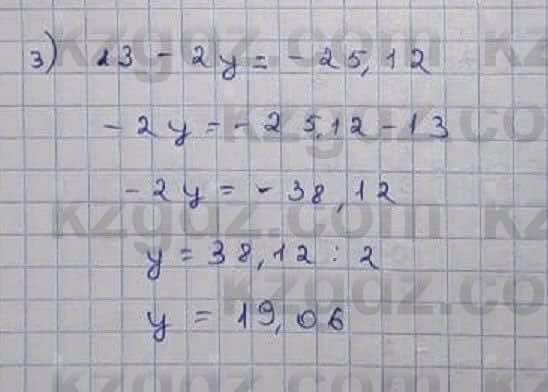 kzgdz.com kz
3) 13 - 2y = - 25,12
kzgdz.co
- 2y = - 25,12 - 13
- 2y = - 38,12
kzgdz.com kz
y = 38,12 : 2
kzgdz.co
y = 19,06
kzgdz.com kz